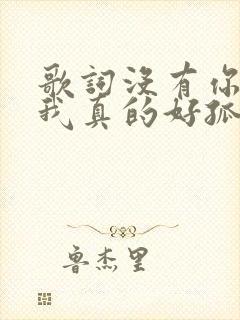 歌詞没有你
我真的好孤
鲁杰里